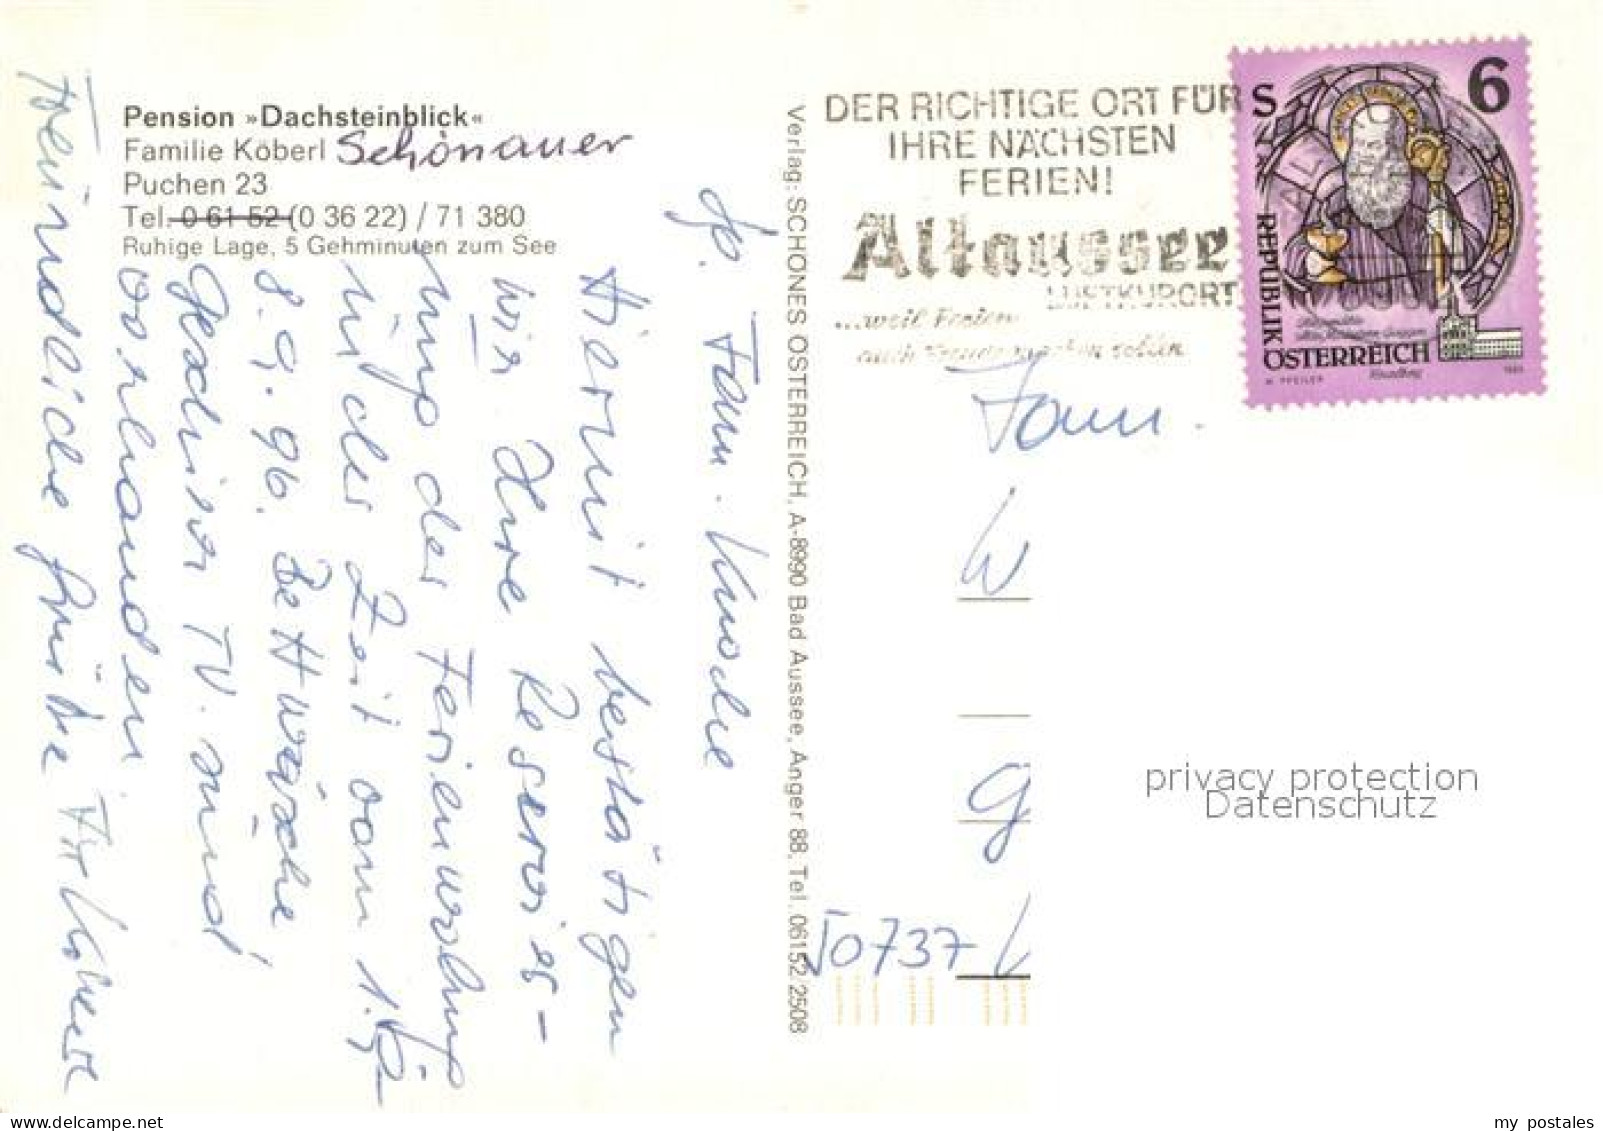 Pension »Dachsteinblick«
Familie Köberl Schönauer
Puchen 23
Tel. 0 61 52 (0 36 22) / 71 380
Ruhige Lage, 5 Gehminuten zum See
Lb. Fam.
Hiermit bestätigen
wir Ihre Reservier-
ung der Ferienwohnung
in der Zeit vom 1.9-
8.9.96. Bettwäsche
Geschirr TV. sind
vorhanden
Freundliche Grüße
Verlag: SCHÖNES ÖSTERREICH, A-8990 Bad Aussee, Anger 88, Tel. 06152 2508
DER RICHTIGE ORT FÜR
IHRE NÄCHSTEN
FERIEN!
Altaussee
LUFTKURORT
...weil Ferien
auch Freude machen sollen
S 6
REPUBLIK
ÖSTERREICH
H. PFEILER
Fam.
W
G
50737 L
privacy protection
Datenschutz
my postales